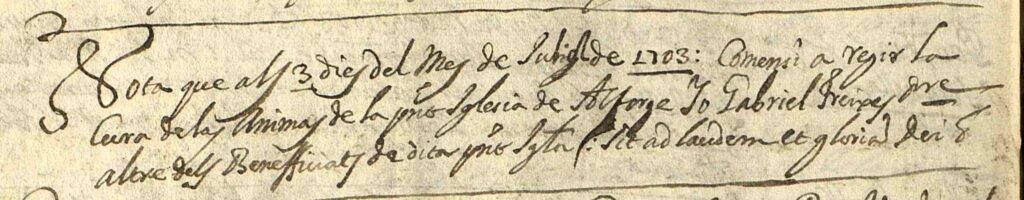 Nota que als 3 dies del Mes de Juliol de 1703: Comensi a regir la
Cura de las Animas de la pnt Iglesia de Alforge Jo Gabriel Freixes pre
altre dels Benefficiats de dita pnt Igla (: sit ad laudem et gloriā Dei &